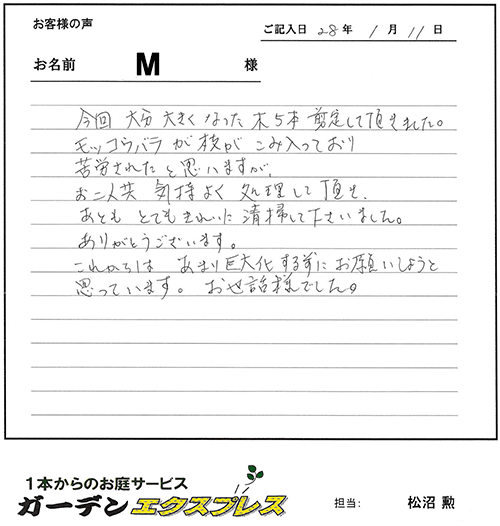 お客様の声
ご記入日 28年 1月 11日
お名前 M 様
今回 大分 大きく なった 木5本 剪定して頂きました。
モッコウバラ が 枝が こみ入っており
苦労された と思いますが、
お二人共 気持よく 処理して 頂き、
あとも とても きれいに 清掃して下さいました。
ありがとうございます。
これからは あまり巨大化する前に お願いしようと
思っています。 お世話様でした。
1本からのお庭サービス
ガーデン エクスプレス
担当: 松沼 勲